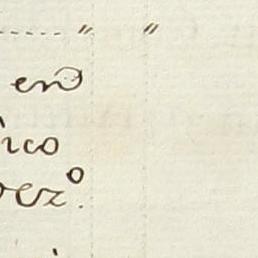 " "
en
ico
ez.º